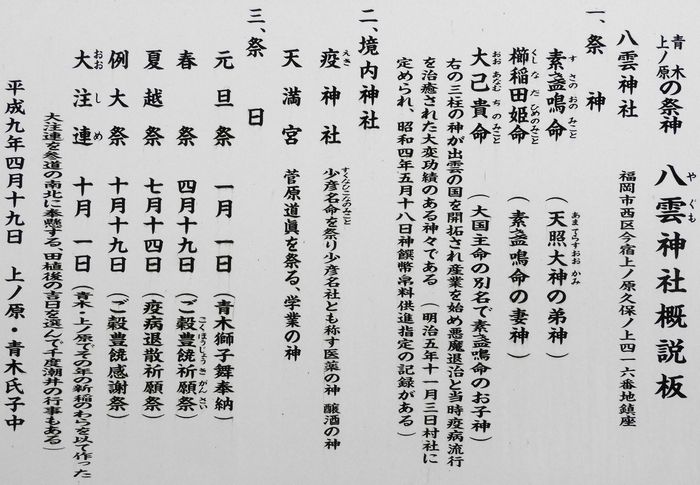 青木
上ノ原の祭神　八雲神社概説板
やぐも
八雲神社　福岡市西区今宿上ノ原久保ノ上四一六番地鎮座
一、祭神
素盞鳴命　（天照大神の弟神）
すさのおのみこと　あまてらすおおかみ
櫛稲田姫命　（素盞鳴命の妻神）
くしなだひめのみこと
大己貴命　（大国主命の別名で素盞鳴命のお子神）
おおあなむちのみこと
右の三柱の神が出雲の国を開拓され産業を始め悪魔退治と当時疫病流行
を治癒された大変功績のある神々である　（明治五年十一月三日村社に
定められ、昭和四年五月十八日神饌幣帛料供進指定の記録がある）
二、境内神社
疫神社　少彦名命を祭り少彦名社とも称す医薬の神　醸酒の神
えき　すくなひこなのみこと
天満宮　菅原道眞を祭る、学業の神
三、祭日
元旦祭　一月　一日（青木獅子舞奉納）
春　祭　四月十九日（ご穀豊饒祈願祭）
こくほうじょうきがんさい
夏越祭　七月十四日（疫病退散祈願祭）
例大祭　十月十九日（ご穀豊饒感謝祭）
大注連　十月　一日（青木・上ノ原でその年の新稲のわらを以て作った
おおしめ
大注連を参道の南北に奉懸する、田植後の吉日を選んで千度潮井の行事もある）
平成九年四月十九日　上ノ原・青木氏子中